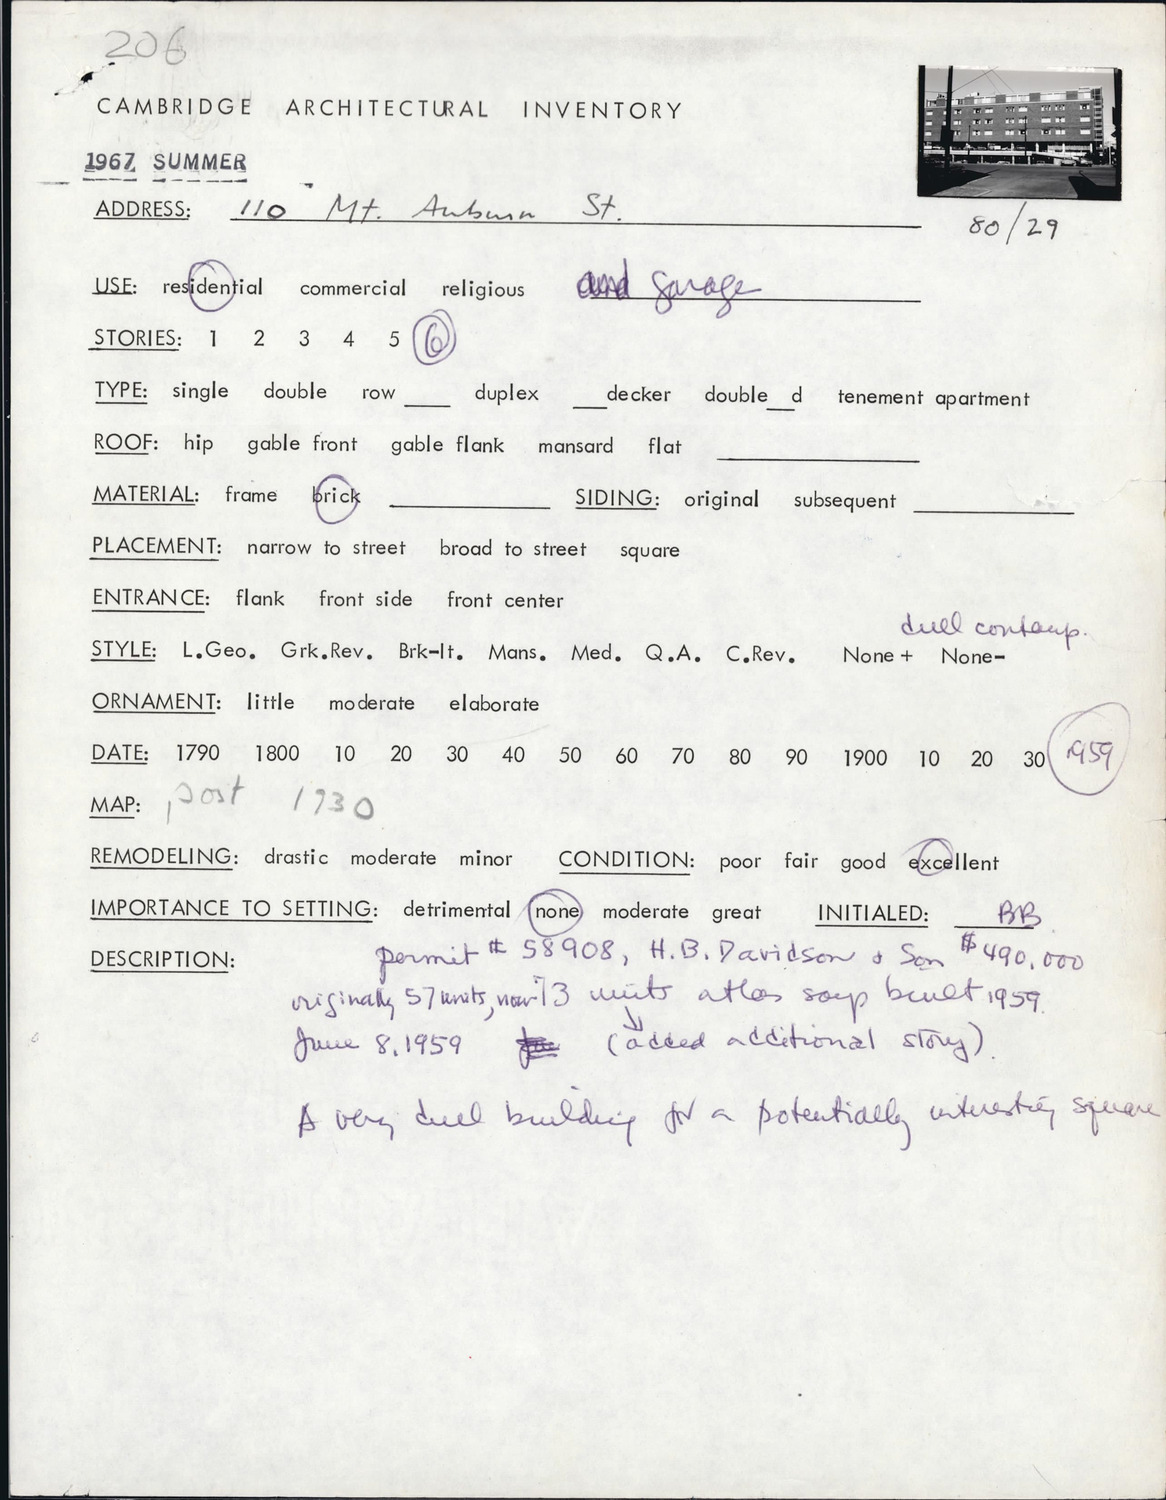 206
CAMBRIDGE ARCHITECTURAL INVENTORY
1967 SUMMER
ADDRESS: 110 Mt. Auburn St.
80/29
USE: residential commercial religious and garage
STORIES: 1 2 3 4 5 6
TYPE: single double row ____ duplex ___decker double__d tenement apartment
ROOF: hip gable front gable flank mansard flat
MATERIAL: frame brick SIDING: original subsequent
PLACEMENT: narrow to street broad to street square
ENTRANCE: flank front side front center
dull contemp.
STYLE: L.Geo. Grk.Rev. Brk-It. Mans. Med. Q.A. C.Rev. None+ None-
ORNAMENT: little moderate elaborate
DATE: 1790 1800 10 20 30 40 50 60 70 80 90 1900 10 20 30 1959
MAP: post 1930
REMODELING: drastic moderate minor CONDITION: poor fair good excellent
IMPORTANCE TO SETTING: detrimental none moderate great INITIALED: BB
DESCRIPTION: permit # 58908, H.B. Davidson & Son $490,000
originally 57 units, now 73 units atlas says built 1959.
June 8, 1959 (added additional story).
A very dull building for a potentially interesting square